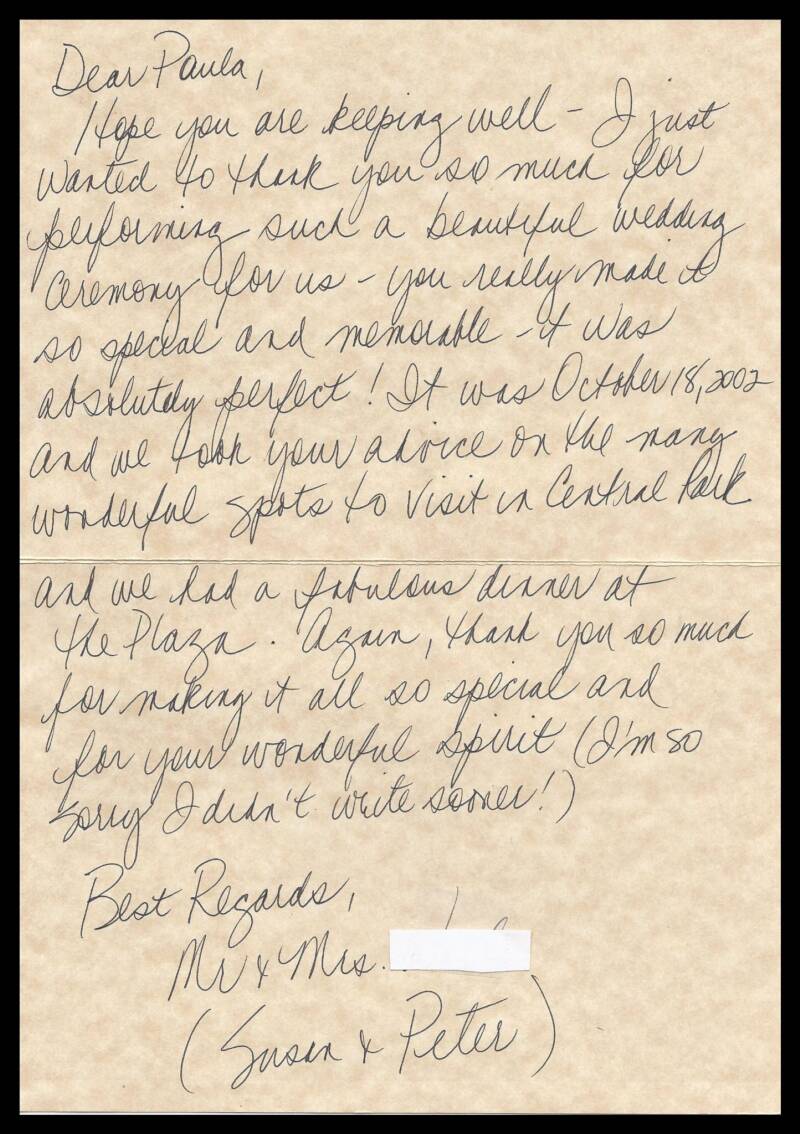 Dear Paula,
Hope you are keeping well - I just
wanted to thank you so much for
performing such a beautiful wedding
ceremony for us - you really made it
so special and memorable - it was
absolutely perfect! It was October 18, 2002
and we took your advice on the many
wonderful spots to visit in Central Park
and we had a fabulous dinner at
the Plaza. Again, thank you so much
for making it all so special and
for your wonderful spirit (I'm so
sorry I didn't write sooner!)
Best Regards,
Mr & Mrs.
(Susan & Peter)